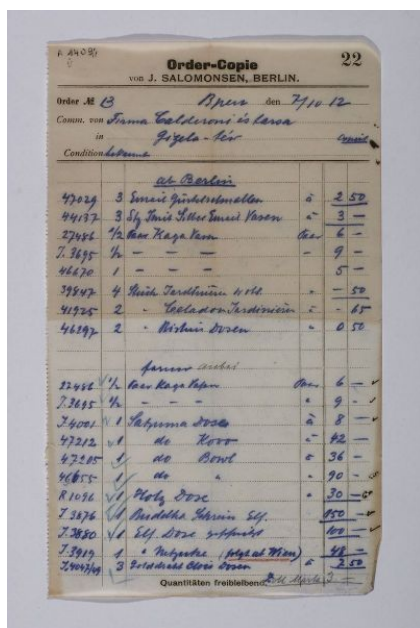 A 2408
Order-Copie 22
von J. SALOMONSEN, BERLIN.
Order № 13 Bpest den 7/10 12
Comm. von Firma Calderoni és társa
in Gizela-tér
Condition bekannt
ab Berlin
47029 3 Email Gürtelschnallen à 2 50
44137 3 Email Vasen à 3 —
27486 1/2 Paar Kaga Vasen Paar 6 —
J.3695 1/2 — — — — 9 —
46670 1 — — — 5 —
39847 4 Stück — 50
41925 2 " Celadon Jardinièren " — 65
46297 2 " Dosen " 0 50
ferner
27486 1/2 Paar Kaga Vasen Paar 6 —
J.3695 1/2 — — — " 9 —
J.4001 1 Satsuma Dose à 8 —
47212 1 do Koro à 42 —
47205 1 do Bowl à 36 —
46655 1 do " " 90 —
R 1096 1 Holz Dose " 30 —
J.3676 1 Buddha Schrein Elf. 150 —
J.3880 1 Elf. Dose 100 —
J.3919 1 " Netzuke (folgt ab Wien) 48 —
J.4047/49 3 Golddraht Clois Dosen à 2 50
Quantitäten freibleibend.